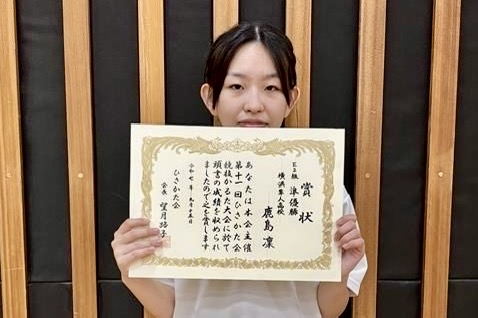 賞状
E2級 準優勝
横浜隼人高校
鹿島 凜
あなたは本会主催
第十一回ひさかた会
競技かるた大会に於て
頭書の成績を収められ
ましたので之を賞します
令和七年九月十五日
ひさかた会
会長